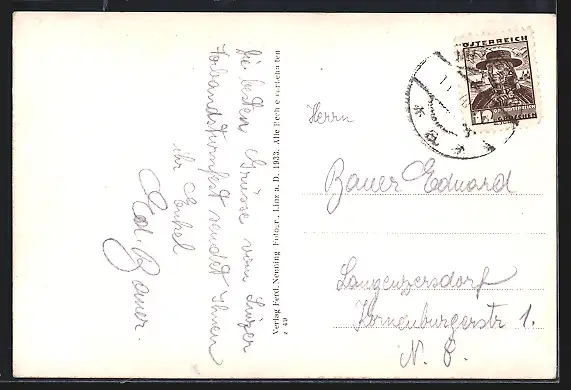 Die besten Grüsse vom Linzer
Verbandsturnfest sendet Ihnen
ihr Enkel
Ed. Bauer.
Verlag Ferd. Neuning Fotogr., Linz a. D. 1933. Alle Rechte vorbehalten
ÖSTERREICH
12
GROSCHEN
Herrn
Bauer Eduard
Langenzersdorf
Kornenburgerstr 1.
N. Ö.